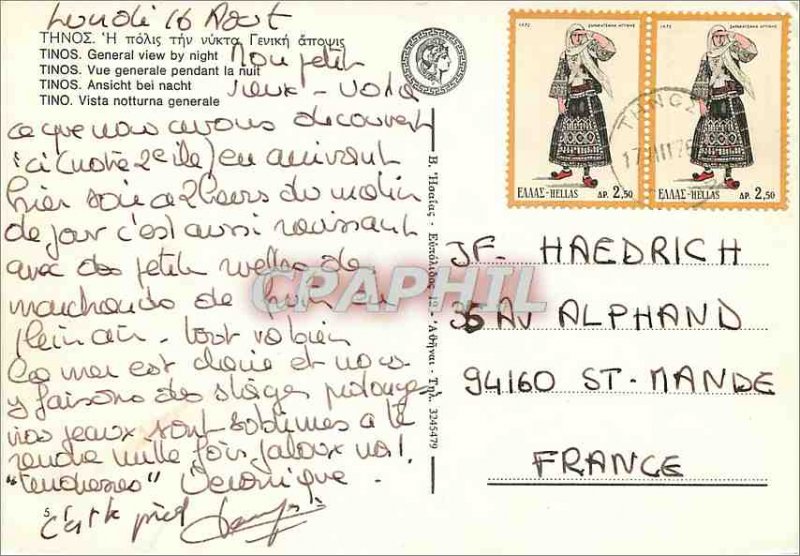 Lundi 16 Aout
ΤΗΝΟΣ. Ἡ πόλις τὴν νύκτα. Γενικὴ ἄποψις
TINOS. General view by night
TINOS. Vue generale pendant la nuit
TINOS. Ansicht bei nacht
TINO. Vista notturna generale
Mon petit
vieux - voilà
ce que nous avons découvert
ici (notre 2e ile) en arrivant
hier soir a 2 heures du matin
de jour c'est aussi ravissant
avec des petites ruelles des
marchands de
plein air - tout va bien
La mer est claire et nous
y faisons des stages prolongés
nos peaux sont sublimes a te
rendre mille fois jaloux
"tendresses" Veronique -
c'est le pied
Β. Ἡσαΐας - Εὐπόλιδος 12 - Ἀθῆναι - Τηλ. 3245479
1972
ΕΛΛΑΣ-HELLAS ΔΡ. 2,50
1972
ΕΛΛΑΣ-HELLAS ΔΡ. 2,50
ΤΗΝΟΣ
CPAPHIL
JF. HAEDRICH
35 AV ALPHAND
94160 ST-MANDE
FRANCE